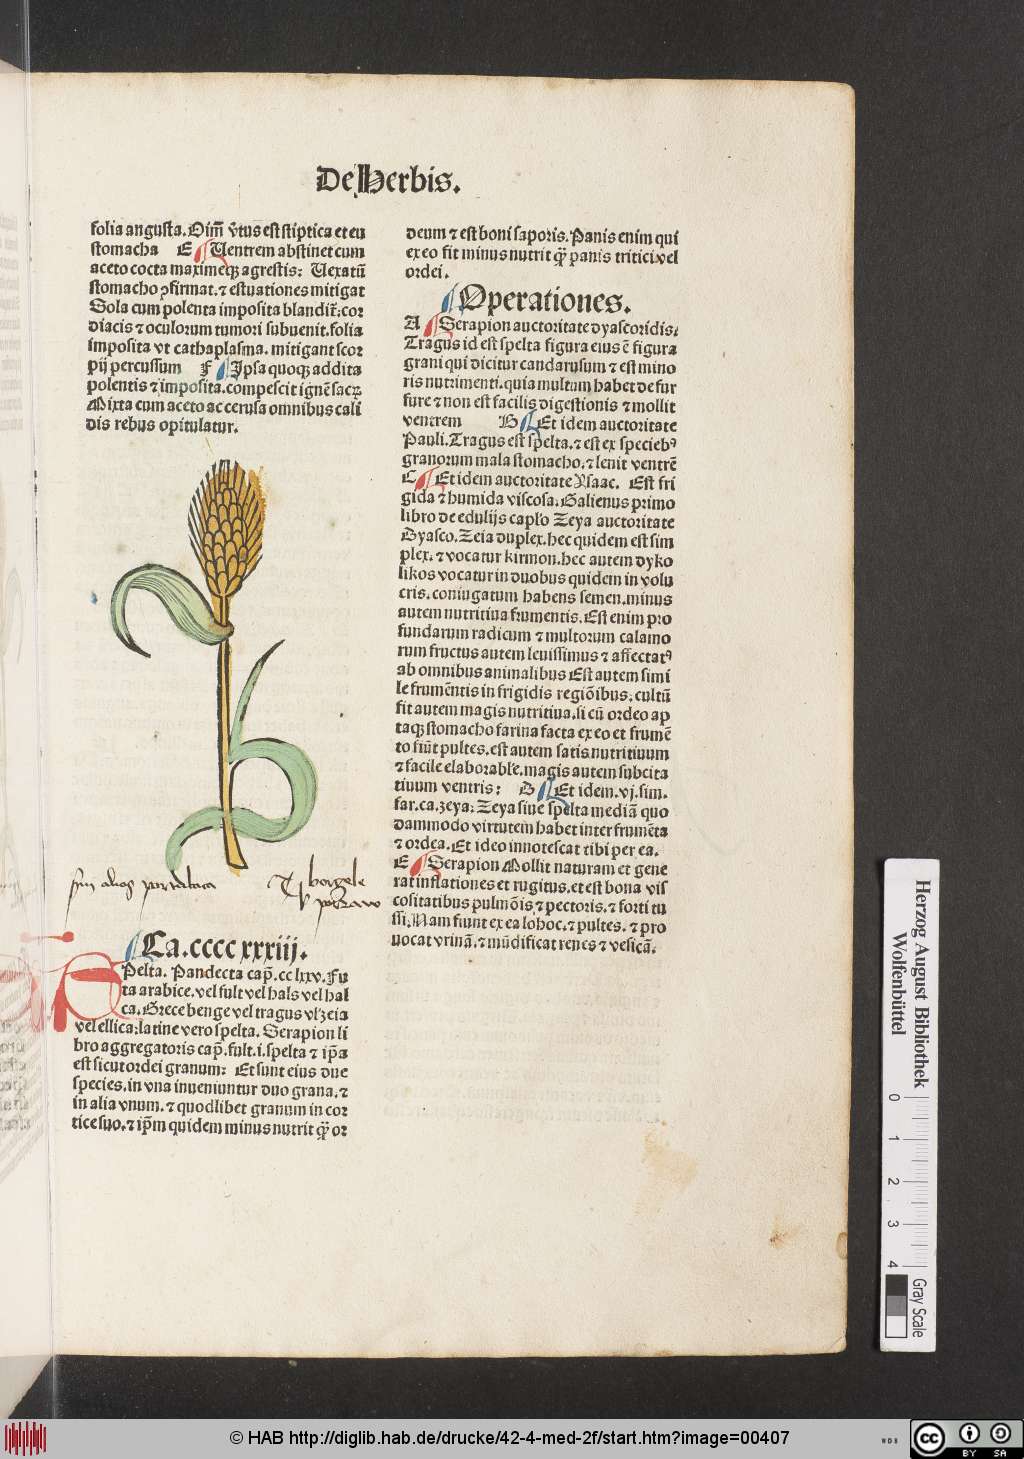 De Herbis.
folia angusta. Oim̄ v̄tus est stiptica et eu
stomacha E Uentrem abstinet cum
aceto cocta maximeqꝫ agrestis: Uexatū
stomacho ꝯfirmat. ⁊ estuationes mitigat
Sola cum polenta imposita blandit̄: cor
diacis ⁊ oculorum tumori subuenit. folia
imposita vt cathaplasma. mitigant scor
pij percussum F Ipsa quoqꝫ addita
polentis ⁊ imposita. compescit ignē sacꝝ
Mixta cum aceto ac cerusa omnibus cali
dis rebus opitulatur.
Ca. cccc xxxiij.
SPelta. Pandecta cap̄. cc lxxv. Fu
ta arabice. vel fult vel hals vel hal
ca. Grece benge vel tragus vl' zeia
vel ellica: latine vero spelta. Serapion li
bro aggregatoris cap̄. fult. i. spelta ⁊ ip̄a
est sicut ordei granum: Et sunt eius due
species. in vna inueniuntur duo grana. ⁊
in alia vnum. ⁊ quodlibet granum in cor
tice suo. ⁊ ip̄m quidem minus nutrit qꝫ̄ or
deum ⁊ est boni saporis. Panis enim qui
ex eo fit minus nutrit qꝫ̄ panis tritici. vel
ordei.
Operationes.
A Serapion auctoritate dyascoridis.
Tragus id est spelta figura eius ē figura
grani qui dicitur candarusum ⁊ est mino
ris nutrimenti. quia multum habet de fur
fure ⁊ non est facilis digestionis ⁊ mollit
ventrem B Et idem auctoritate
Pauli. Tragus est spelta. ⁊ est ex specieb⁹
granorum mala stomacho. ⁊ lenit ventrē
C Et idem auctoritate Ysaac. Est fri
gida ⁊ humida viscosa. Galienus primo
libro de edulijs caplo Zeya auctoritate
Dyasco. Zeia duplex. hec quidem est sim
plex. ⁊ vocatur kirmon. hec autem dyko
likos vocatur in duobus quidem in volu
cris. coniugatum habens semen. minus
autem nutritiua frumentis. Est enim pro
fundarum radicum ⁊ multorum calamo
rum fructus autem leuissimus ⁊ affectat⁹
ab omnibus animalibus Est autem simi
le frumentis in frigidis regiōibus. cultū
fit autem magis nutritiua. si cū ordeo ap
taqꝫ stomacho farina facta ex eo et frumē
to fiūt pultes. est autem satis nutritiuum
⁊ facile elaborable. magis autem subcita
tiuum ventris: D Et idem. vj. sim.
far. ca. zeya: Zeya siue spelta mediā quo
dammodo virtutem habet inter frumēta
⁊ ordea. Et ideo innotescat tibi per ea.
E Serapion Mollit naturam et gene
rat inflationes et rugitus. et est bona vis
cositatibus pulmōis ⁊ pectoris. ⁊ forti tu
ssi. Nam fiunt ex ea lohoc. ⁊ pultes. ⁊ pro
uocat vrinā. ⁊ mūdificat renes ⁊ vesicā.
Herzog August Bibliothek
Wolfenbüttel
0 1 2 3 4
Gray Scale
© HAB http://diglib.hab.de/drucke/42-4-med-2f/start.htm?image=00407
WDB
cc BY SA